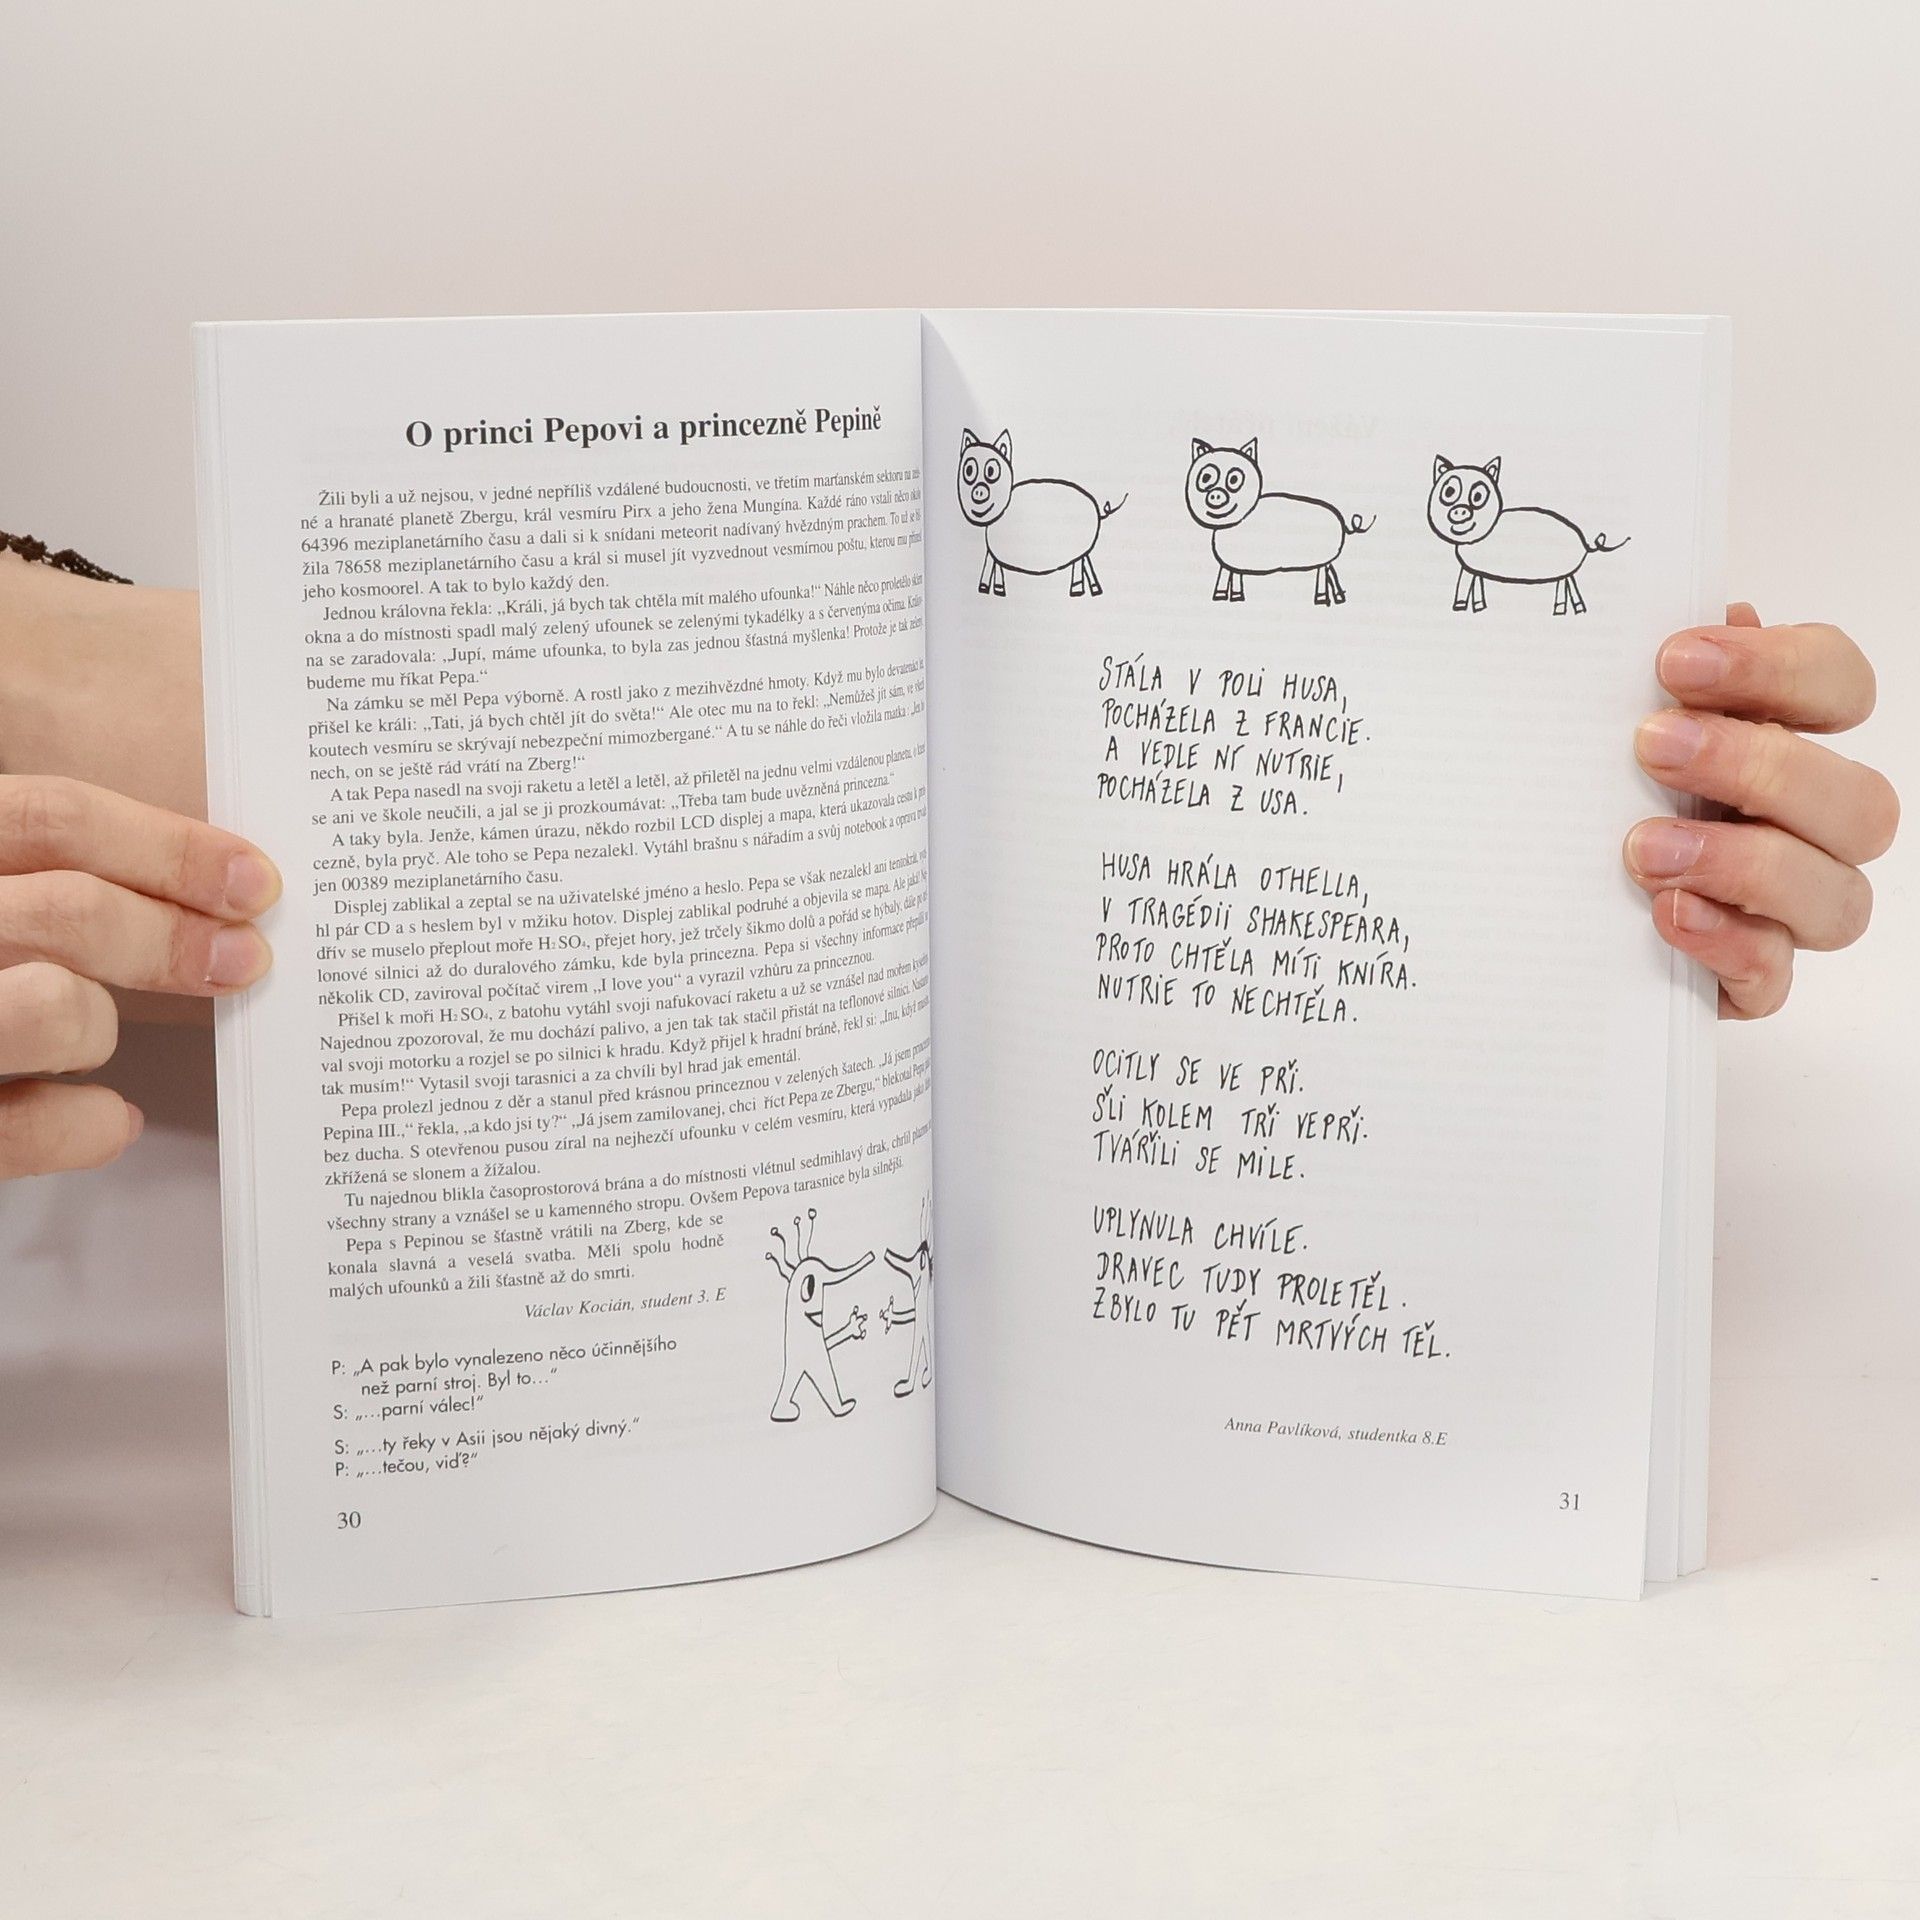 O princi Pepovi a princezně Pepině
Žili byli a už nejsou, v jedné nepříliš vzdálené budoucnosti, ve třetím marťanském sektoru na
né a hranaté planetě Zbergu, král vesmíru Pirx a jeho žena Mungína. Každé ráno vstali něco
64396 meziplanetárního času a dali si k snídani meteorit nadívaný hvězdným prachem. To už se
žila 78658 meziplanetárního času a král si musel jít vyzvednout vesmírnou poštu, kterou mu
jeho kosmoorel. A tak to bylo každý den.
Jednou královna řekla: „Králi, já bych tak chtěla mít malého ufounka!“ Náhle něco proletělo
okna a do místnosti spadl malý zelený ufounek se zelenými tykadélky a s červenýma očima.
na se zaradovala: „Jupí, máme ufounka, to byla zas jednou šťastná myšlenka! Protože je tak
budeme mu říkat Pepa.“
Na zámku se měl Pepa výborně. A rostl jako z mezihvězdné hmoty. Když mu bylo devatenáct
přišel ke králi: „Tati, já bych chtěl jít do světa!“ Ale otec mu na to řekl: „Nemůžeš jít sám, ve
koutech vesmíru se skrývají nebezpeční mimozbergané.“ A tu se náhle do řeči vložila matka:
nech, on se ještě rád vrátí na Zberg!“
A tak Pepa nasedl na svoji raketu a letěl a letěl, až přiletěl na jednu velmi vzdálenou planetu, o
se ani ve škole neučili, a jal se ji prozkoumávat: „Třeba tam bude uvězněná princezna.“
A taky byla. Jenže, kámen úrazu, někdo rozbil LCD displej a mapa, která ukazovala cestu k
cezně, byla pryč. Ale toho se Pepa nezalekl. Vytáhl brašnu s nářadím a svůj notebook a oprava
jen 00389 meziplanetárního času.
Displej zablikal a zeptal se na uživatelské jméno a heslo. Pepa se však nezalekl ani tentokrát,
hl pár CD a s heslem byl v mžiku hotov. Displej zablikal podruhé a objevila se mapa. Ale
dřív se muselo přeplout moře H₂SO₄, přejet hory, jež trčely šikmo dolů a pořád se hýbaly, dále
lonové silnici až do duralového zámku, kde byla princezna. Pepa si všechny informace
několik CD, zaviroval počítač virem „I love you“ a vyrazil vzhůru za princeznou.
Přišel k moři H₂SO₄, z batohu vytáhl svoji nafukovací raketu a už se vznášel nad mořem
Najednou zpozoroval, že mu dochází palivo, a jen tak tak stačil přistát na teflonové silnici.
val svoji motorku a rozjel se po silnici k hradu. Když přijel k hradní bráně, řekl si: „Inu, když
tak musím!“ Vytasil svoji tarasnici a za chvíli byl hrad jak ementál.
Pepa prolezl jednou z děr a stanul před krásnou princeznou v zelených šatech. „Já jsem
Pepina III.,“ řekla, „a kdo jsi ty?“ „Já jsem zamilovanej, chci říct Pepa ze Zbergu,“ blekotal Pepa
bez ducha. S otevřenou pusou zíral na nejhezčí ufounku v celém vesmíru, která vypadala jako
zkřížená se slonem a žížalou.
Tu najednou blikla časoprostorová brána a do místnosti vlétnul sedmihlavý drak, chrlil
všechny strany a vznášel se u kamenného stropu. Ovšem Pepova tarasnice byla silnější.
Pepa s Pepinou se šťastně vrátili na Zberg, kde se
konala slavná a veselá svatba. Měli spolu hodně
malých ufounků a žili šťastně až do smrti.
Václav Kocián, student 3. E
P: „A pak bylo vynalezeno něco účinnějšího
než parní stroj. Byl to…“
S: „…parní válec!“
S: „…ty řeky v Asii jsou nějaký divný.“
P: „…tečou, viď?“
30
STÁLA V POLI HUSA,
POCHÁZELA Z FRANCIE.
A VEDLE NÍ NUTRIE,
POCHÁZELA Z USA.
HUSA HRÁLA OTHELLA,
V TRAGÉDII SHAKESPEARA,
PROTO CHTĚLA MÍTI KNÍRA.
NUTRIE TO NECHTĚLA.
OCITLY SE VE PŘI.
ŠLI KOLEM TŘI VEPŘI.
TVÁŘILI SE MILE.
UPLYNULA CHVÍLE.
DRAVEC TUDY PROLETĚL.
ZBYLO TU PĚT MRTVÝCH TĚL.
Anna Pavlíková, studentka 8.E
31